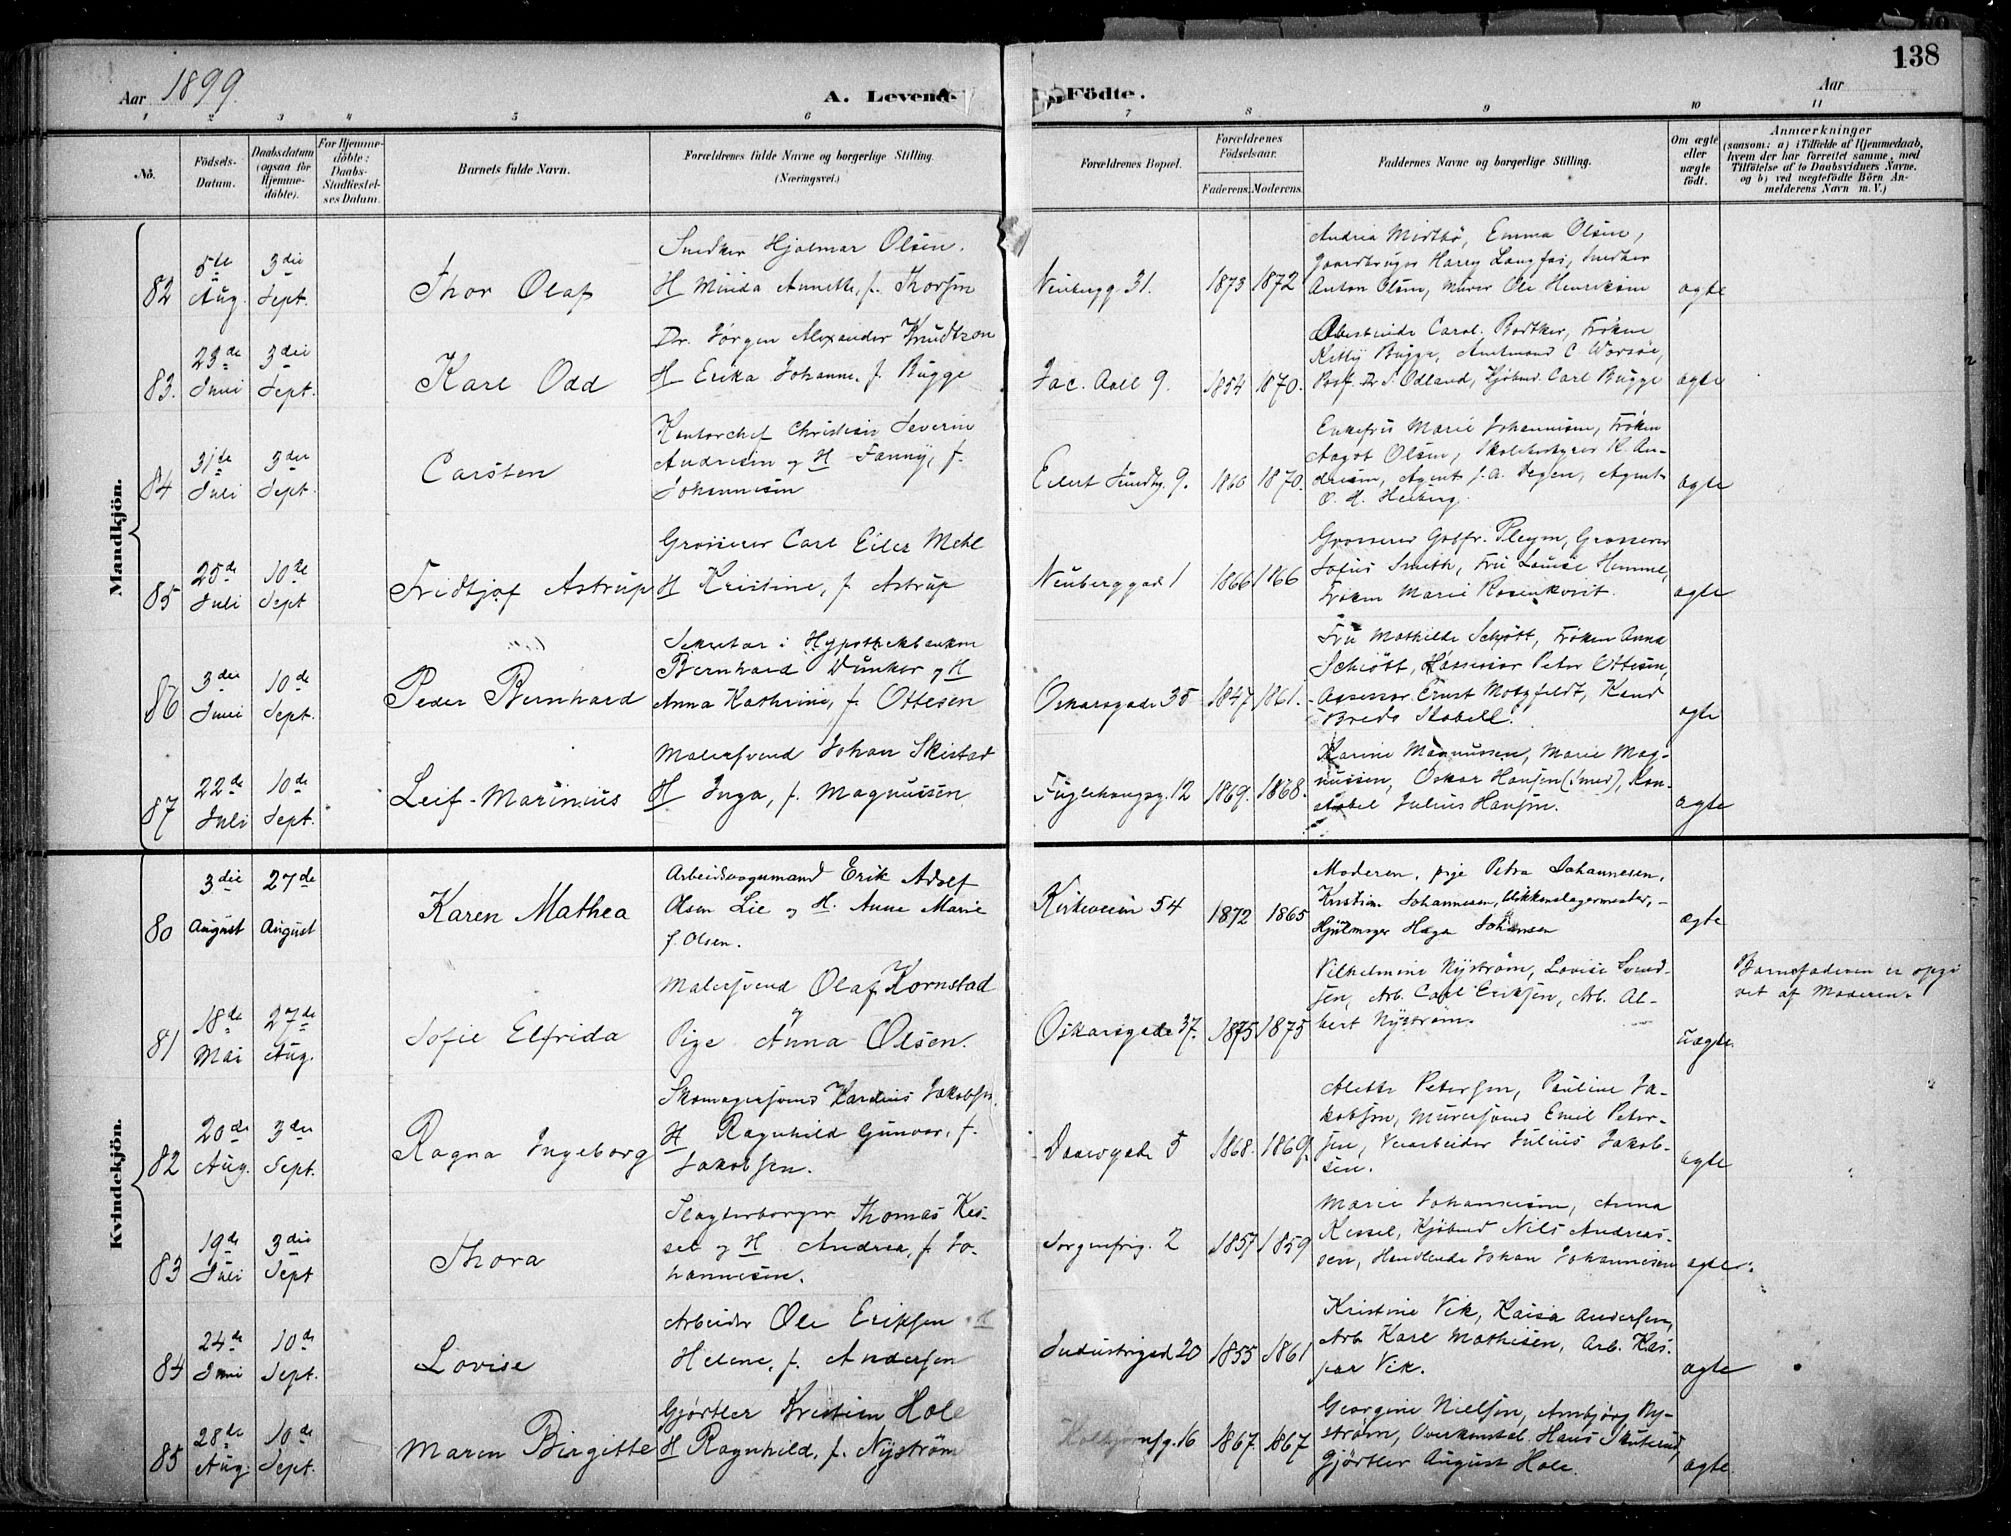 138
Aar 1899.
A. Levende Födte.
Aar
1 2 3 4 5 6 7 8 9 10 11
No.
Födsels-
Datum.
Daabsdatum
(ogsaa för
Hjemme-
döbte).
For Hjemme-
döbte:
Daabs-
Stadfæstel-
ses Datum.
Barnets fulde Navn.
Forældrenes fulde Navne og borgerlige Stilling.
(Næringsvei.)
Forældrenes Bopæl.
Forældrenes
Födselsaar.
Faderens. Moderens.
Faddernes Navne og borgerlige Stilling.
Om ægte
eller
uægte
födt.
Anmærkninger
(saasom: a) i Tilfælde af Hjemmedaab,
hvem der har forrettet samme, med
Tilföielse af to Daabsvidners Navne.
og b) ved uægtefödte Börn An-
melderens Navn m. V.)
Mandkjön.
82
5te Aug.
3die Sept.
Thor Olaf
Snedker Hjalmar Olsen.
H Minda Annette, f. Thorsen
Neubergg 31.
1873 1872
Andrea Midtbö, Emma Olsen,
Gaardbruger Harry Langfos, Snedker
Anton Olsen, Murer Ole Henriksen
ægte
83.
23de Juni
3die Sept.
Karl Odd
Dr. Jörgen Alexander Knudtzon
H Erika Johanne, f. Bugge
Jac. Aall 9.
1854 1870.
Carol. Bödtker, Fröken
Kitty Bugge, Amtmand C Worsöe,
Prof. Dr. S. Odland, Kjöbmd. Carl Bugge
ægte
84
31te Juli
3die Sept.
Carsten
Kontorchef Christian Severin
Andresen og H Fanny, f.
Johannesen
Eilert Sundtg. 9.
1866 1870.
Enkefru Marie Johannesen, Fröken
Aagot Olsen, Skolebestyrer K. An-
dresen, Agent J. A. Degen, Agent
O. H. Heiberg.
ægte
85
25de Juli
10de Sept
Fridtjof Astrup
Grosserer Carl Eiler Mehl
H Kristine, f. Astrup
Neuberggad 1
1866 1866
Grosserer Gotfr. Pleym, Grosserer
Julius Smith, Fru Louise Hemme,
Fröken Marie Rosenkvist.
ægte
86
3die Juni
10de Sept.
Peder Bernhard
Sekretær i Hypothekbanken
Bernhard Dunker og H
Anna Kathrine, f. Ottesen
Oskarsgade 35
1847 1861.
Fru Mathilde Schjött, Fröken Anna
Schiött, Assessor Peter Ottesen,
Assessor Ernst Motzfeldt, Kand
Breda Stabell.
ægte
87
22de Juli
10de Sept.
Leif-Marinius
Malersvend Johan Skistad
H Inga, f. Magnussen
Fuglehaugsg. 12
1869. 1868.
Karine Magnussen, Marie Mag-
nussen, Oskar Hansen (Smed), Kon-
stabel Julius Hansen.
ægte
Kvindekjön.
80
3die August
27de August
Karen Mathea
Arbeidsvognmand Erik Adolf
Olsen Lie og H. Anne Marie
f. Olsen.
Kirkeveien 54
1872 1865
Moderen, pige Petra Johannesen,
Kristian Johannesen, blikkenslagermester,
Hjulmager Haga Johansen
ægte
81
18de Mai
27de Aug.
Sofie Elfrida
Malersvend Olaf Kornstad
og
Pige Anna Olsen.
Oskarsgade 37.
1875 1875
Vilhelmine Nyström, Lovise Svend-
sen, Arb. Carl Eriksen, Arb. Al-
bert Nyström.
uægte.
Barnefaderen er opgi
vet af Moderen.
82
20de Aug.
3die Sept.
Ragna Ingeborg
Skomagersvend Kardius Jakobsen
H Ragnhild Gunvor, f.
Jakobsen.
Daasgade 5
1868. 1869.
Alette Petersen, Pauline Ja-
kobsen, Murersvend Emil Peter-
sen, Veiarbeider Julius Jakob-
sen.
ægte
83
19de Juli
3die Sept
Thora
Slagterborger Thomas Kes-
sel og H Andrea, f. Jo-
hannesen.
Sorgenfrig. 2
1857 1859
Marie Johannesen, Anna
Kessel, Kjöbmd Nils Andreas-
sen, Handlende Johan Johannesen
ægte.
84
24de Juni
10de Sept.
Lovise
Arbeider Ole Eriksen H
Helene, f. Andersen
Industrigad 20
1855 1861
Kristine Vik, Kaisa Andersen,
Arb Karl Mathisen, Arb. Kas-
par Vik.
ægte
85
28de Aug.
10de Sept.
Maren Birgitte
Gjörtler Kristian Hole
H Ragnhild, f. Nyström
Holbjørnsg. 16
1867. 1867
Georgine Nielsen, Annbjörg Ny-
ström, Overkonstabel Hans Skuterud,
Gjörtler August Hole.
ægte.